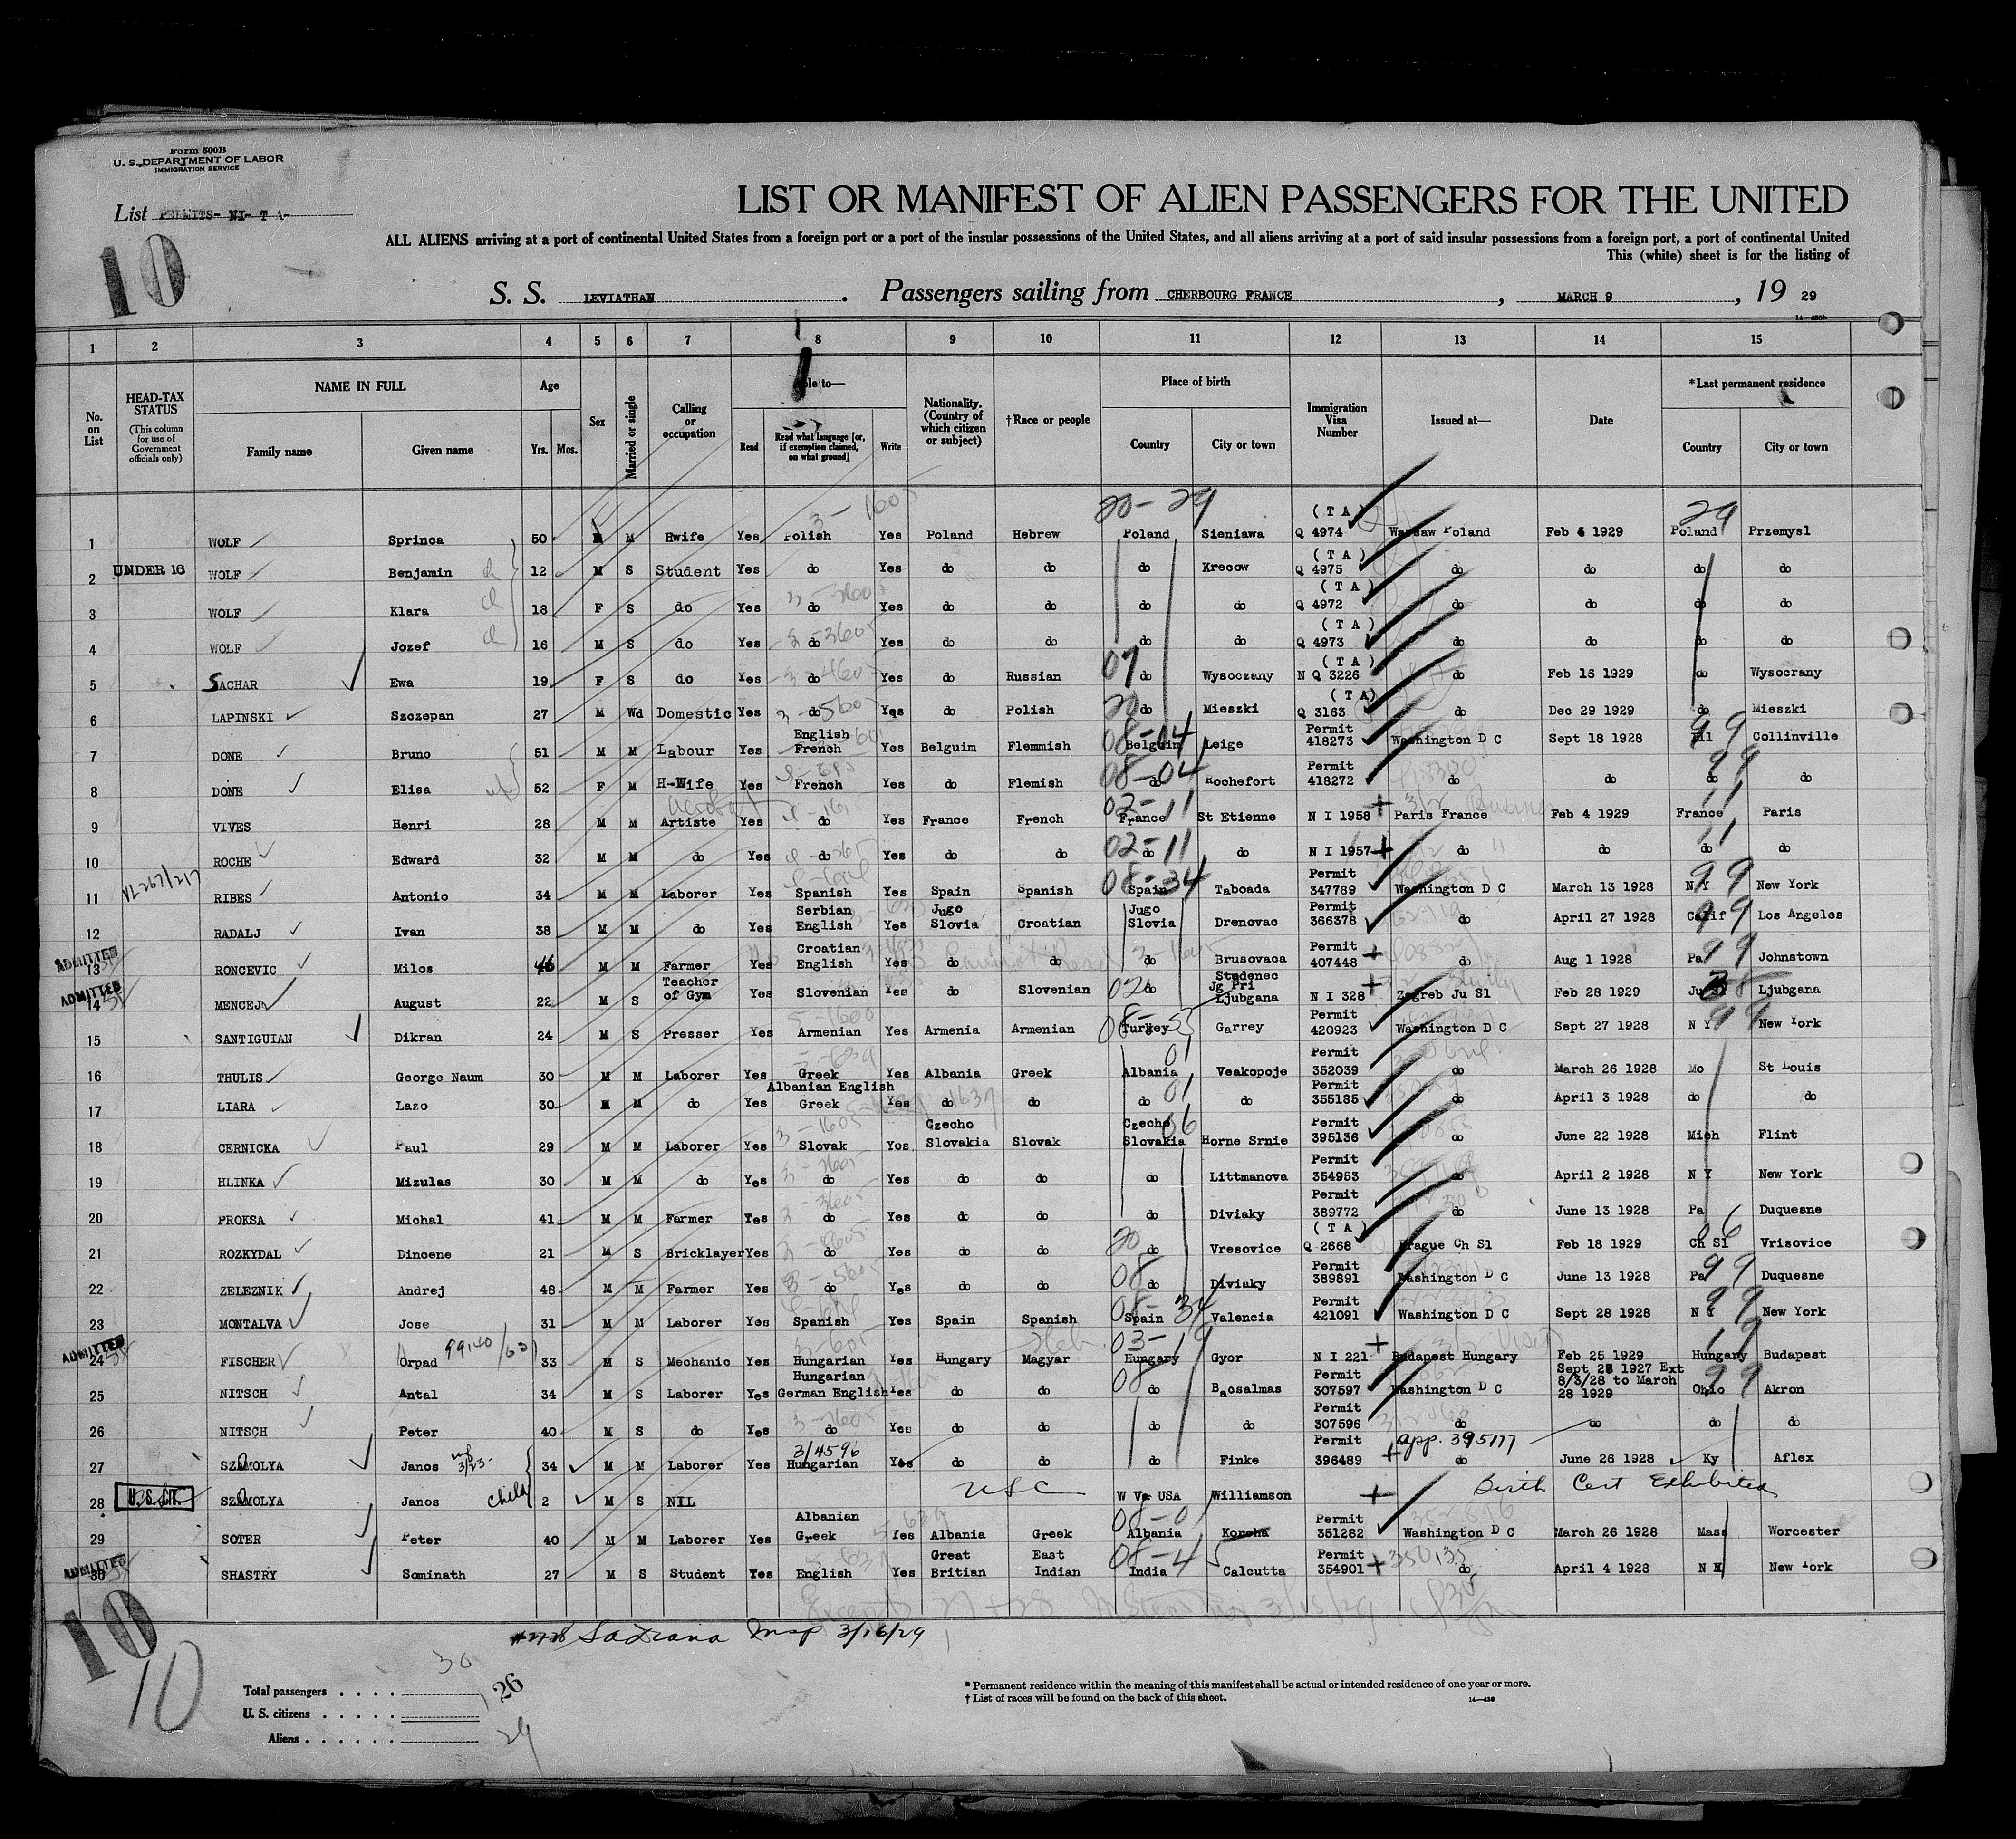 Form 500B
U. S. DEPARTMENT OF LABOR
IMMIGRATION SERVICE
List PERMITS- NI- T A-
10
LIST OR MANIFEST OF ALIEN PASSENGERS FOR THE UNITED
ALL ALIENS arriving at a port of continental United States from a foreign port or a port of the insular possessions of the United States, and all aliens arriving at a port of said insular possessions from a foreign port, a port of continental United
This (white) sheet is for the listing of
S. S. LEVIATHAN . Passengers sailing from CHERBOURG FRANCE , MARCH 9 , 19 29
1 2 3 4 5 6 7 8 9 10 11 12 13 14 15
No. on List
HEAD-TAX STATUS (This column for use of Government officials only)
NAME IN FULL Family name Given name
Age Yrs. Mos.
Sex
Married or single
Calling or occupation
Able to— Read Read what language [or, if exemption claimed, on what ground] Write
Nationality. (Country of which citizen or subject)
†Race or people
Place of birth Country City or town
Immigration Visa Number
Issued at—
Date
*Last permanent residence Country City or town
1 WOLF Sprinca 50 F M Hwife Yes Polish Yes Poland Hebrew Poland Sieniawa (T A) Q 4974 Warsaw Poland Feb 4 1929 Poland Przemysl
2 UNDER 16 WOLF Benjamin 12 M S Student Yes do Yes do do do Krecow (T A) Q 4975 do do do do
3 WOLF Klara 18 F S do Yes do Yes do do do do (T A) Q 4972 do do do do
4 WOLF Jozef 16 M S do Yes do Yes do do do do (T A) Q 4973 do do do do
5 SACHAR Ewa 19 F S do Yes do Yes do Russian 07 do Wysoczany (T A) N Q 3226 do Feb 16 1929 do Wysocrany
6 LAPINSKI Szczepan 27 M Wd Domestic Yes do Yes do Polish 20 do Mieszki (T A) Q 3163 do Dec 29 1929 do Mieszki
7 DONE Bruno 51 M M Labour Yes English French Yes Belguim Flemmish 08-04 Belguim Leige Permit 418273 Washington D C Sept 18 1928 99 Ill Collinville
8 DONE Elisa 52 F M H-Wife Yes French Yes do Flemish 08-04 do Rochefort Permit 418272 do do 99 do do
9 VIVES Henri 28 M M Artiste Yes do Yes France French 02-11 France St Etienne N I 1958 Paris France Feb 4 1929 11 France Paris
10 ROCHE Edward 32 M M do Yes do Yes do do 02-11 do do N I 1957 do do 11 do do
11 RIBES Antonio 34 M M Laborer Yes Spanish Yes Spain Spanish 08-34 Spain Taboada Permit 347789 Washington D C March 13 1928 99 N Y New York
12 RADALJ Ivan 38 M M do Yes Serbian English Yes Jugo Slovia Croatian Jugo Slovia Drenovac Permit 366378 do April 27 1928 99 Calif Los Angeles
ADMITTED 13 RONCEVIC Milos 46 M M Farmer Yes Croatian English Yes do do do Brusovaca Permit 407448 do Aug 1 1928 99 Pa Johnstown
ADMITTED 14 MENCEJ August 22 M S Teacher of Gym Yes Slovenian Yes do Slovenian 02 do Studenec Jg Pri Ljubgana N I 328 Zagreb Ju Sl Feb 28 1929 Ju Sl Ljubgana
15 SANTIGUIAN Dikran 24 M S Presser Yes Armenian Yes Armenia Armenian Turkey Garrey Permit 420923 Washington D C Sept 27 1928 99 N Y New York
16 THULIS George Naum 30 M M Laborer Yes Greek Yes Albania Greek 01 Albania Veakopoje Permit 352039 do March 26 1928 Mo St Louis
17 LIARA Lazo 30 M M do Yes Albanian English Greek Yes do do 01 do do Permit 355185 do April 3 1928 do do
18 CERNICKA Paul 29 M M Laborer Yes Slovak Yes Czecho Slovakia Slovak 06 Czecho Slovakia Horne Srnie Permit 395136 do June 22 1928 Mich Flint
19 HLINKA Mizulas 30 M M do Yes do Yes do do do Littmanova Permit 354953 do April 2 1928 N Y New York
20 PROKSA Michal 41 M M Farmer Yes do Yes do do do Diviaky Permit 389772 do June 13 1928 Pa Duquesne
21 ROZKYDAL Dinoene 21 M S Bricklayer Yes do Yes do do 20 do Vresovice (T A) Q 2668 Prague Ch Sl Feb 18 1929 06 Ch Sl Vrisovice
22 ZELEZNIK Andrej 48 M M Farmer Yes do Yes do do 08 do Diviaky Permit 389891 Washington D C June 13 1928 99 Pa Duquesne
23 MONTALVA Jose 31 M M Laborer Yes Spanish Yes Spain Spanish 08-34 Spain Valencia Permit 421091 Washington D C Sept 28 1928 99 N Y New York
ADMITTED 24 FISCHER Orpad 33 M S Mechanic Yes Hungarian Yes Hungary Magyar 03-19 Hungary Gyor N I 221 Budapest Hungary Feb 25 1929 19 Hungary Budapest
25 NITSCH Antal 34 M S Laborer Yes Hungarian German English Yes do do 08 do Bacsalmas Permit 307597 Washington D C Sept 28 1927 Ext 8/3/28 to March 28 1929 99 Ohio Akron
26 NITSCH Peter 40 M S do Yes do Yes do do do do Permit 307596 do do do do
27 SZAMOLYA Janos 34 M M Laborer Yes 3/4596 Hungarian Yes do do do Finke Permit 396489 app. 395117 do June 26 1928 Ky Aflex
28 U.S. CIT. SZAMOLYA Janos Child 2 M S NIL USC W Va USA Williamson Birth Cert Exhibited
29 SOTER Peter 40 M M Laborer Yes Albanian Greek Yes Albania Greek 08-01 Albania Korcha Permit 351282 Washington D C March 26 1928 Mass Worcester
ADMITTED 30 SHASTRY Sominath 27 M S Student Yes English Yes Great Britian East Indian 08-45 India Calcutta Permit 354901 do April 4 1928 N Y New York
10
10
3/16/29
Total passengers . . . . 30 26
U. S. citizens . . . . .
Aliens . . . . . . 29
* Permanent residence within the meaning of this manifest shall be actual or intended residence of one year or more.
† List of races will be found on the back of this sheet.
14—430